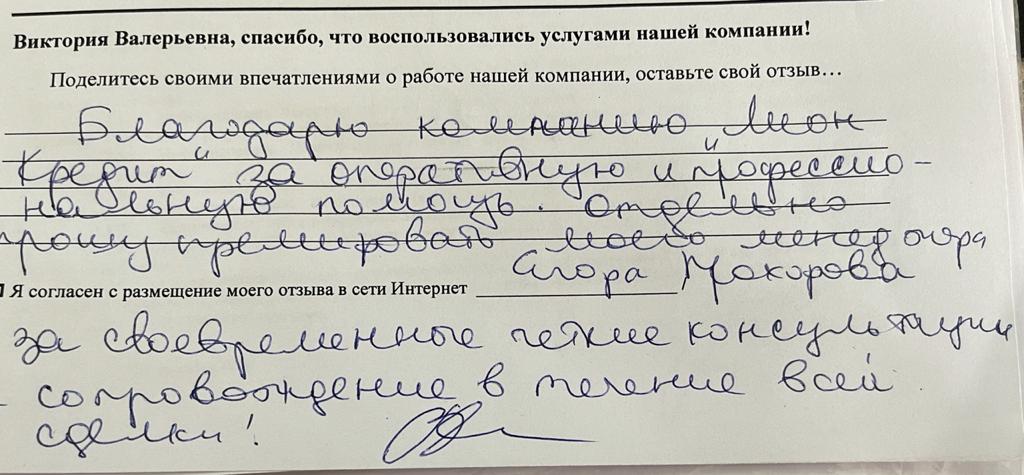 Виктория Валерьевна, спасибо, что воспользовались услугами нашей компании!
Поделитесь своими впечатлениями о работе нашей компании, оставьте свой отзыв…
Благодарю компанию Лион
Кредит за оперативную и професcио-
нальную помощь. Отдельно
прошу премировать моего менеджера
Егора Мохорова
Я согласен с размещение моего отзыва в сети Интернет
за своевременные четкие консультации
сопровождение в течение всей
сделки!